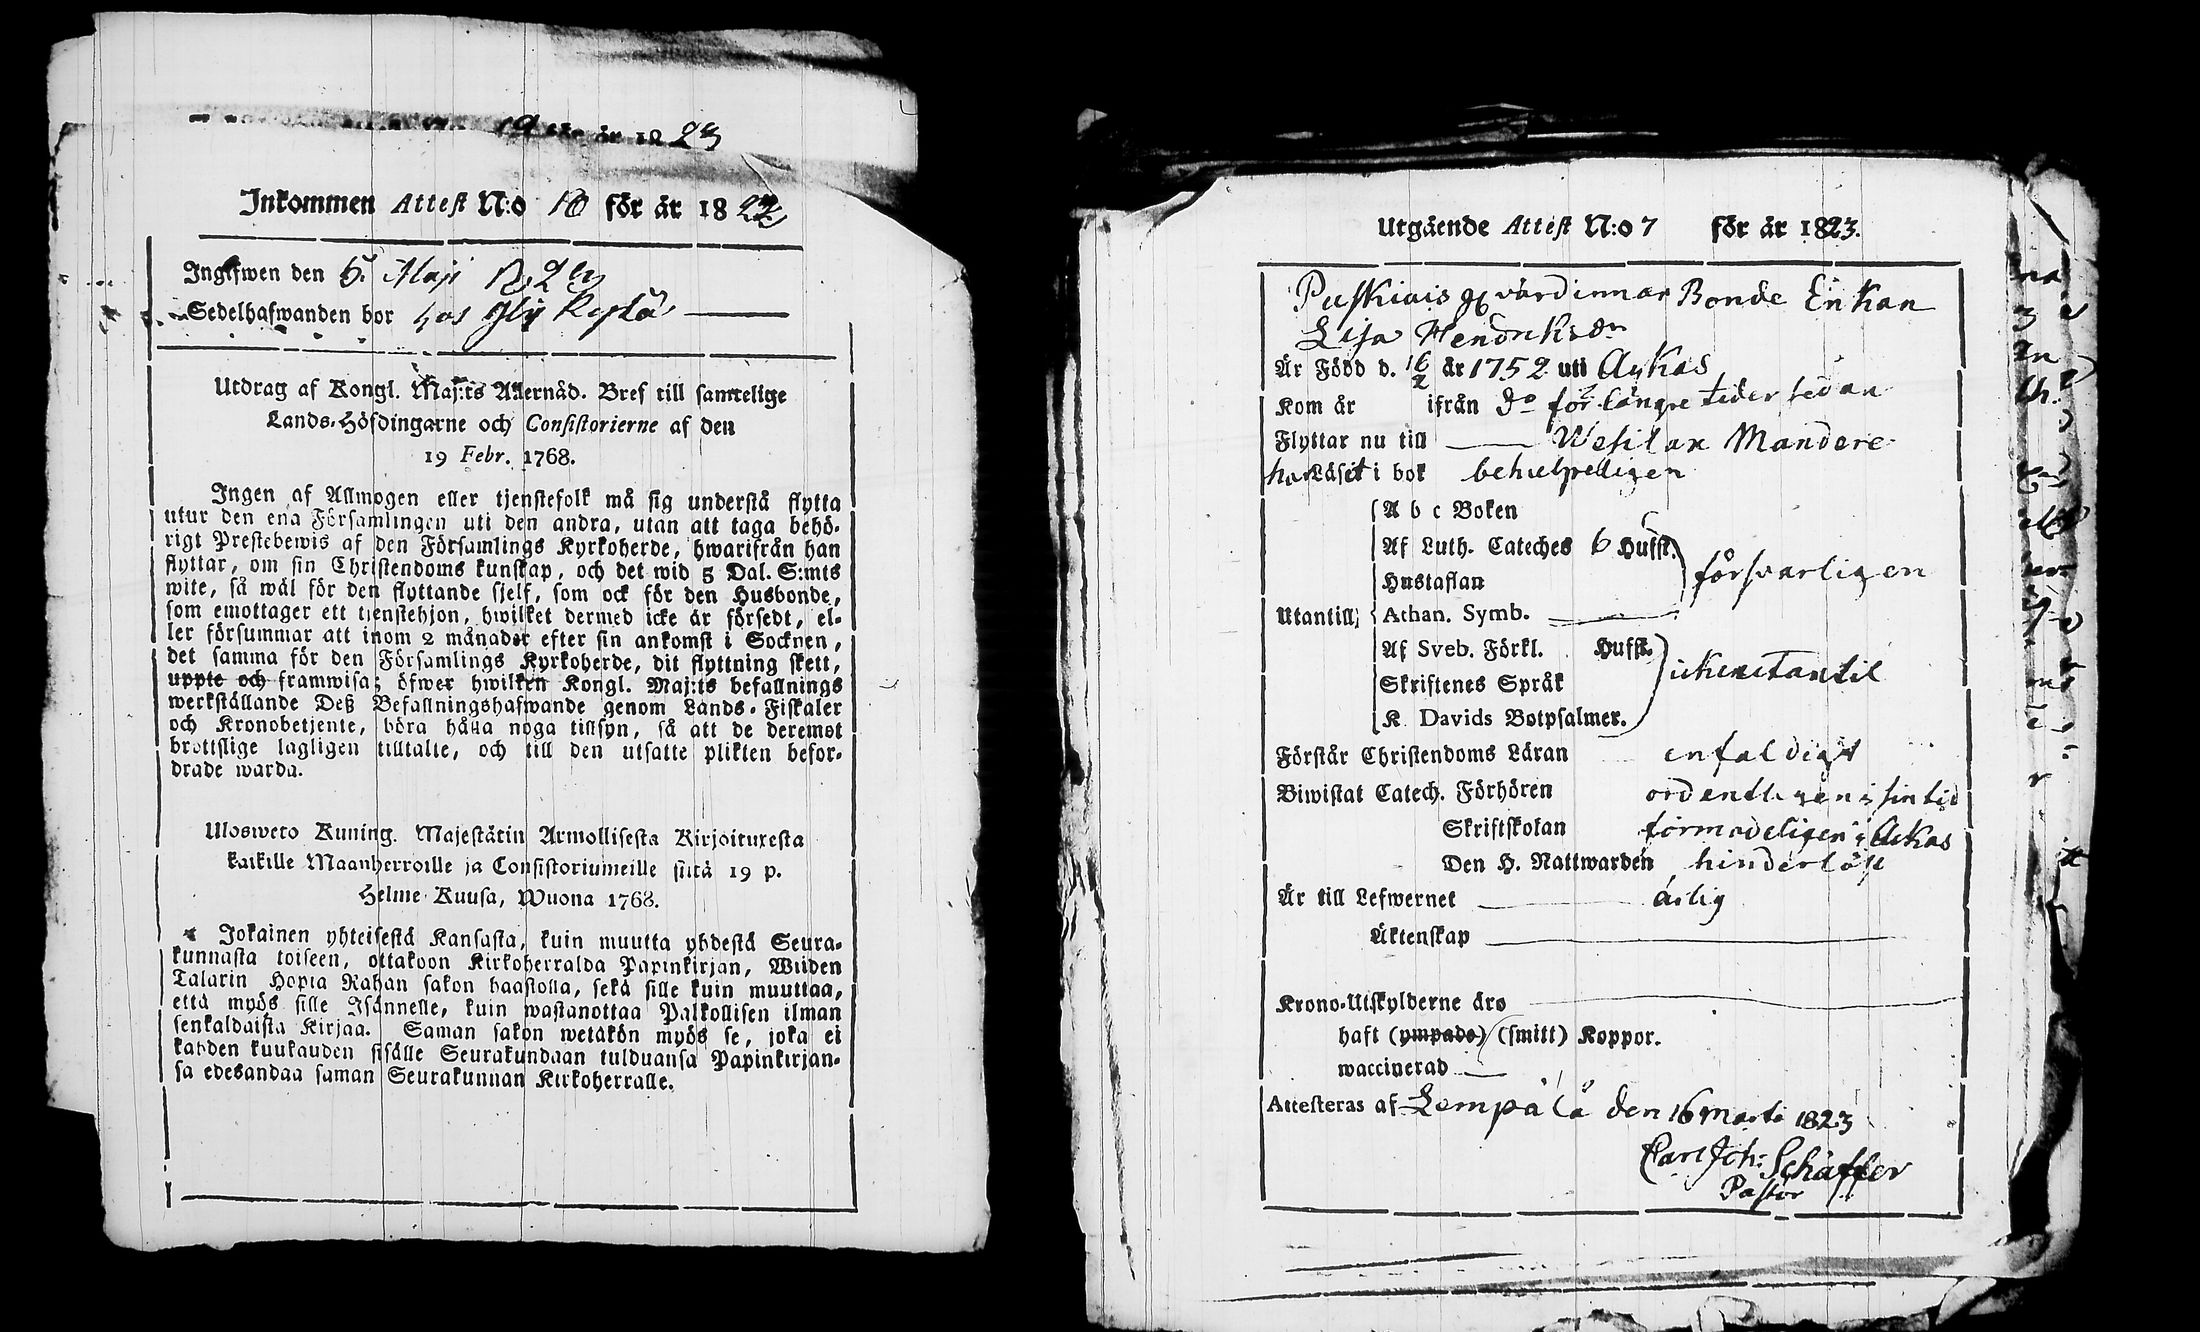 för år 1823
Inkommen Attest N:o 10 för år 1823
Ingifwen den 5. Maji 1823
Sedelhafwanden bor hos
Utdrag af Kongl. Maj:ts Allernåd. Bref till samtelige
Lands-Höfdingarne och Consistorierne af den
19 Febr. 1768.
Ingen af Allmogen eller tjenstefolk må sig understå flytta
utur den ena Församlingen uti den andra, utan att taga behö-
rigt Prestebewis af den Församlings Kyrkoherde, hwarifrån han
flyttar, om sin Christendoms kunskap, och det wid 5 Dal. S:mts
wite, så wäl för den flyttande sjelf, som ock för den Husbonde,
som emottager ett tjenstehjon, hwilket dermed icke är försedt, el-
ler försummar att inom 2 månader efter sin ankomst i Socknen,
det samma för den Församlings Kyrkoherde, dit flyttning skett,
uppte och framwisa; öfwer hwilken Kongl. Maj:ts befallnings
werkställande Deß Befallningshafwande genom Lands-Fiskaler
och Kronobetjente, böra hålla noga tillsyn, så att de deremot
brottslige lagligen tilltalte, och till den utsatte plikten befor-
drade warda.
Ulosweto Kuning. Majestätin Armollisesta Kirjoituxesta
kaikille Maanherroille ja Consistoriumeille siitä 19 p.
Helme Kuusa, Wuona 1768.
Jokainen yhteisestä Kansasta, kuin muutta yhdestä Seura-
kunnasta toiseen, ottakoon Kirkoherralda Papinkirjan, Wiiden
Talarin Hopia Rahan sakon haastolla, sekä sille kuin muuttaa,
että myös sille Isännelle, kuin wastanottaa Palkollisen ilman
senkaldaista Kirjaa. Saman sakon wetäkön myös se, joka ei
kahden kuukauden sisälle Seurakundaan tulduansa Papinkirjan-
sa edesandaa saman Seurakunnan Kirkoherralle.
Utgående Attest N:o 7 för år 1823.
Puskiais värdinnan Bonde Enkan
Lisa Hendriksdr
Är Född d. 16/2 år 1752 uti Aykas
Kom år ifrån do för längre tider sedan
Flyttar nu till Wesilax Mandere
har Läsit i bok behielpeligen
A b c Boken
Af Luth. Cateches 6 Hufst.
Hustaflan försvarligen
Utantill, Athan. Symb.
Af Sveb. Förkl. Hufst.
Skriftenes Språk ickeutantil
K. Davids Botpsalmer.
Förstår Christendoms Läran enfaldigt
Biwistat Catech. Förhören ordentligen i sin tid
Skriftskolan förmodeligen i Aykas
Den H. Nattwarden hinderlöst
Är till Lefwernet ärlig
Äktenskap
Krono-Utskylderne äro
haft (ympade) (smitt) Koppor.
waccinerad
Attesteras af Lempälä den 16 Martii 1823
Carl Joh: Schäffer
Pastor